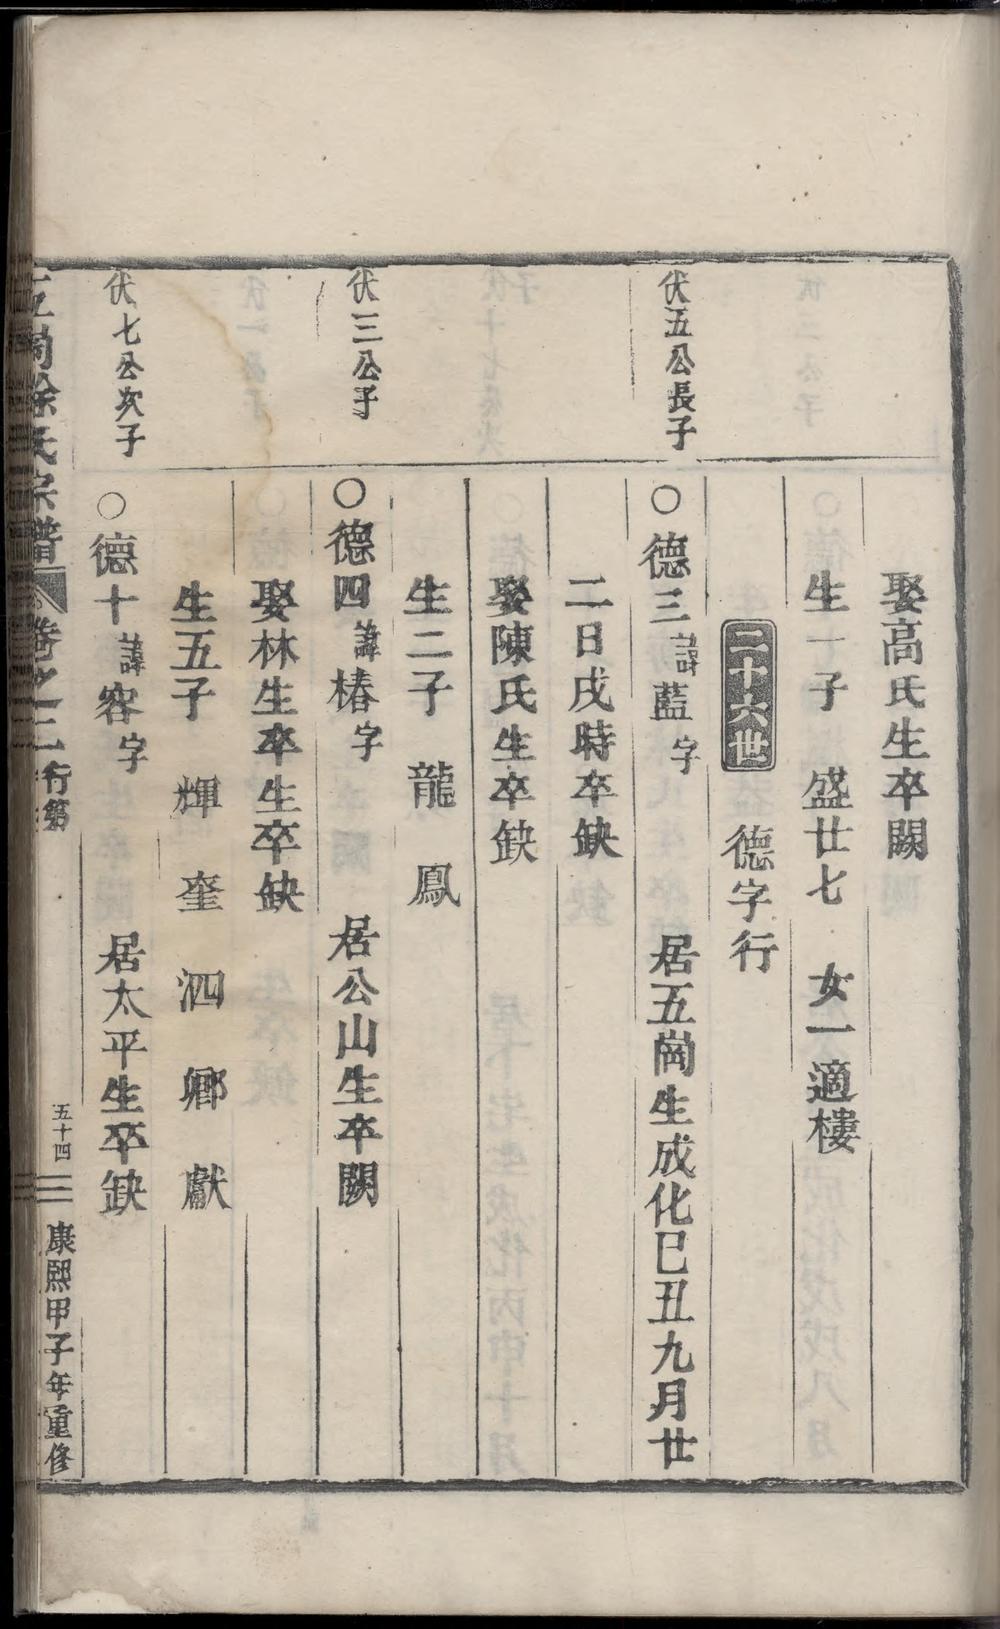 娶高氏生卒闕
生一子　盛廿七　女一適樓
二十六世　德字行
伏五公長子
○德三諱藍字　居五崗生成化己丑九月廿
二日戌時卒缺
娶陳氏生卒缺
生二子　龍　鳳
伏三公子
○德四諱椿字　居公山生卒闕
娶林生卒生卒缺
生五子　輝　奎　泗　鄉　獻
伏七公次子
○德十諱容字　居太平生卒缺
五崗徐氏宗譜　卷之二　行第　五十四　康熙甲子年重修